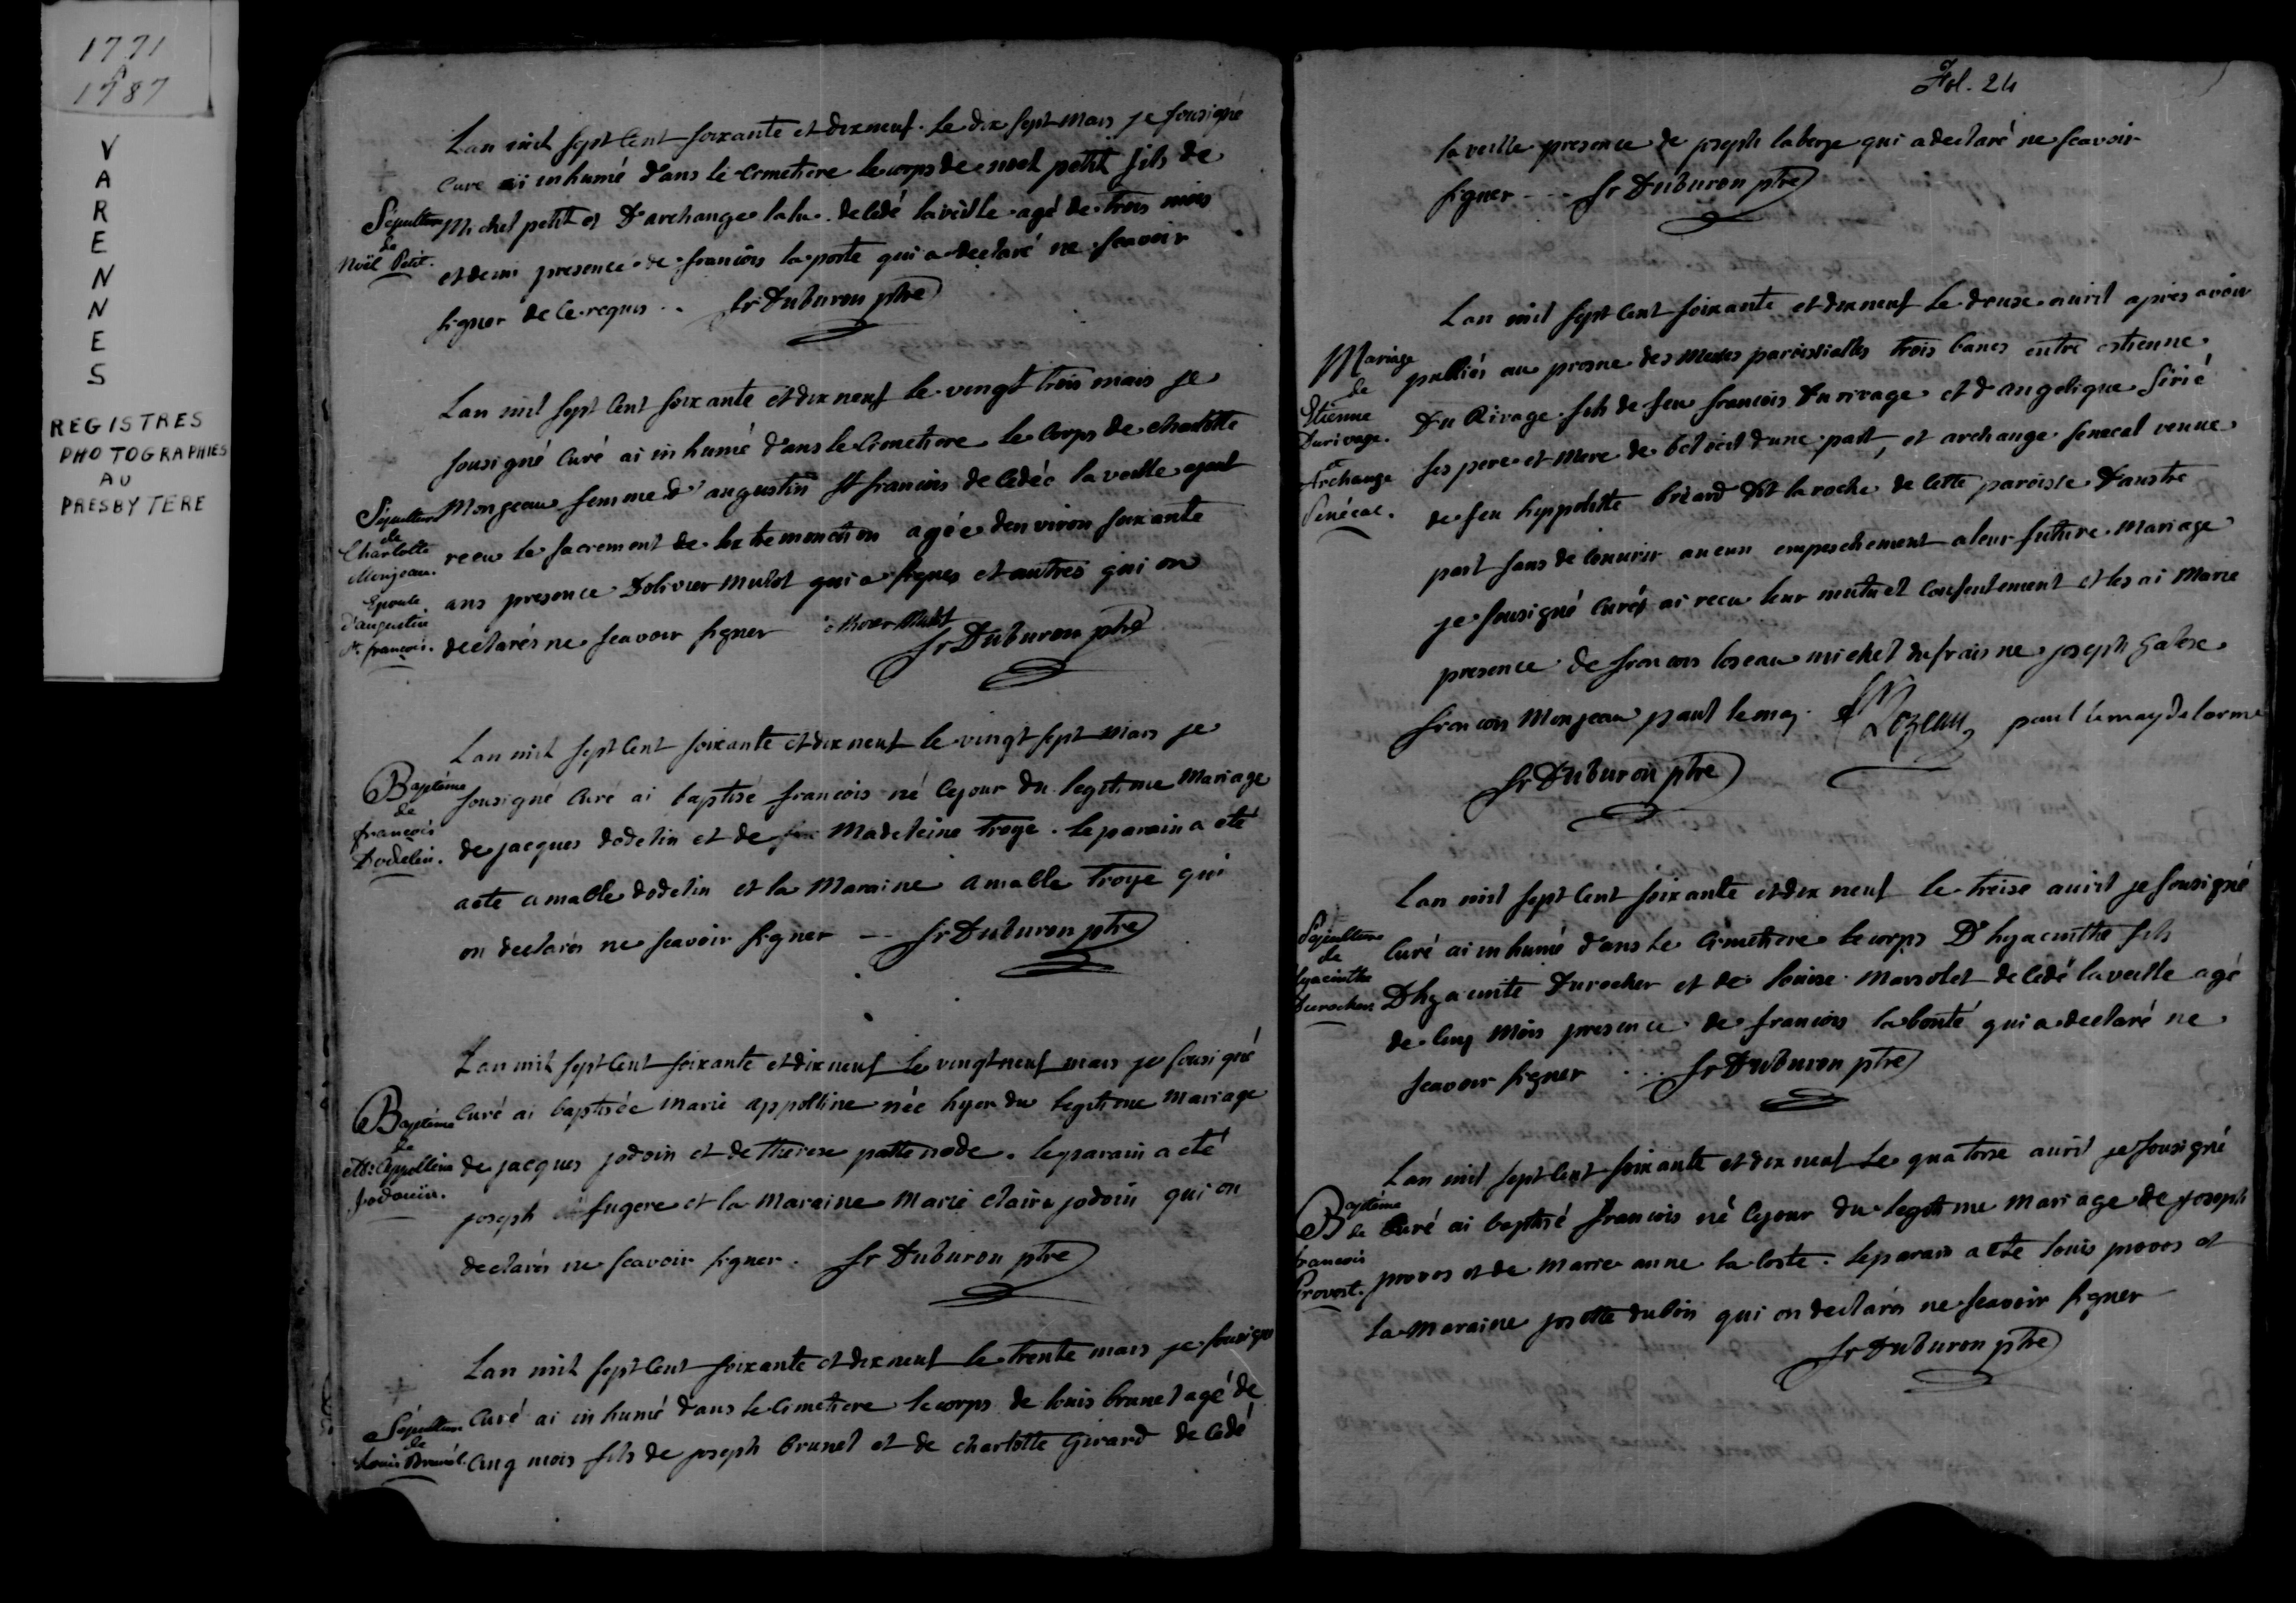 1771
à
1787
VARENNES
REGISTRES
PHOTOGRAPHIES
AU
PRESBYTERE
Lan mil sept Cent soixante et dix neuf. Le dix sept mars je sousigné
Curé ai inhumé dans le Cimetiere le corps de noel petit fils de
Michel petit et D'archange lalu. decedé la veille agé de trois mois
et demi presence de francois laporte qui a declaré ne scavoir
signer de ce requis .. Sr Duburon ptre
Sépulture
de
Noël Petit.
Lan mil sept Cent soixante et dix neuf le vingt trois mars je
sousigné Curé ai inhumé dans le Cimetiere le Corps de charlotte
Monjeau femme d'augustin st francois decedée la veille ayant
recu le sacrement de lextremonction agée denviron soixante
ans presence Dolivier mulot qui a signes et autres qui on
declarés ne scavoir signer olivier Mulot
Sr Duburon ptre
Sépulture
de
Charlotte
Monjeau.
Epouse
d'augustin
st. francois.
Lan mil sept Cent soixante et dix neuf le vingt sept mars je
sousigné Curé ai baptisé francois né cejour du legitime Mariage
de jacques dodelin et de Madeleine Troye. le parain a eté
acté amable dodelin et la Maraine amable Troye qui
on declarés ne scavoir signer -- Sr Duburon ptre
Baptême
de
francois
Dodelin.
Lan mil sept Cent soixante et dix neuf le vingt neuf mars je sousigné
Curé ai baptisée marie appolline née hyer du legitime Mariage
de jacques jodoin et de therese pattenode. le parain a eté
joseph fugere et la Maraine Marie claire jodoin qui on
declarés ne scavoir signer. Sr Duburon ptre
Baptême
de
Mie Appolline
Jodouin.
Lan mil sept Cent soixante et dix neuf le trente mars je sousigné
Curé ai inhumé dans le Cimetiere le corps de louis brunet agé de
Cinq mois fils de joseph brunet et de charlotte Girard decedé
Sépulture
de
Louis Brunet.
Fol. 24
la veille presence de joseph laberge qui a declaré ne scavoir
signer -- Sr Duburon ptre
Lan mil sept Cent soixante et dix neuf le douse avril apres avoir
publiés au prosne des Messes paroissialles trois bancs entre estienne
Du Rivage fils de feu francois Durivage et d'angelique Sirié
ses pere et Mere de beloeil dune part, et archange senecal veuve
de feu hyppolitte briard Dit laroche de cette paroisse D'austre
part sans decouvrir aucun empeschement a leur future Mariage
je sousigné Curé ai recu leur mutuel Consentement et les ai Marié
presence de francois loseau michel dufraisne joseph galese
francois Monjeau paul lemay. Lozeau paul lemay delorme
Sr Duburon ptre
Mariage
de
Etienne
Durivage.
et
Archange
Senécal.
Lan mil sept Cent soixante et dix neuf le treise avril je sousigné
Curé ai inhumé dans le Cimetiere le corps D'hyacinthe fils
D'hyacinte Durocher et de louise Marsolet decedé la veille agé
de Cinq Mois presence de francois labonté qui a declaré ne
scavoir signer ... Sr Duburon ptre
Sépulture
de
hyacinthe
Durocher.
Lan mil sept Cent soixante et dix neuf Le quatorse avril je sousigné
Curé ai baptisé francois né cejour du legitime Mariage de joseph
provos et de Marie anne lacoste. le parain a ete louis provos et
la Maraine josette dubois qui on declarés ne scavoir signer
Sr Duburon ptre
Baptême
de
francois
Provost.